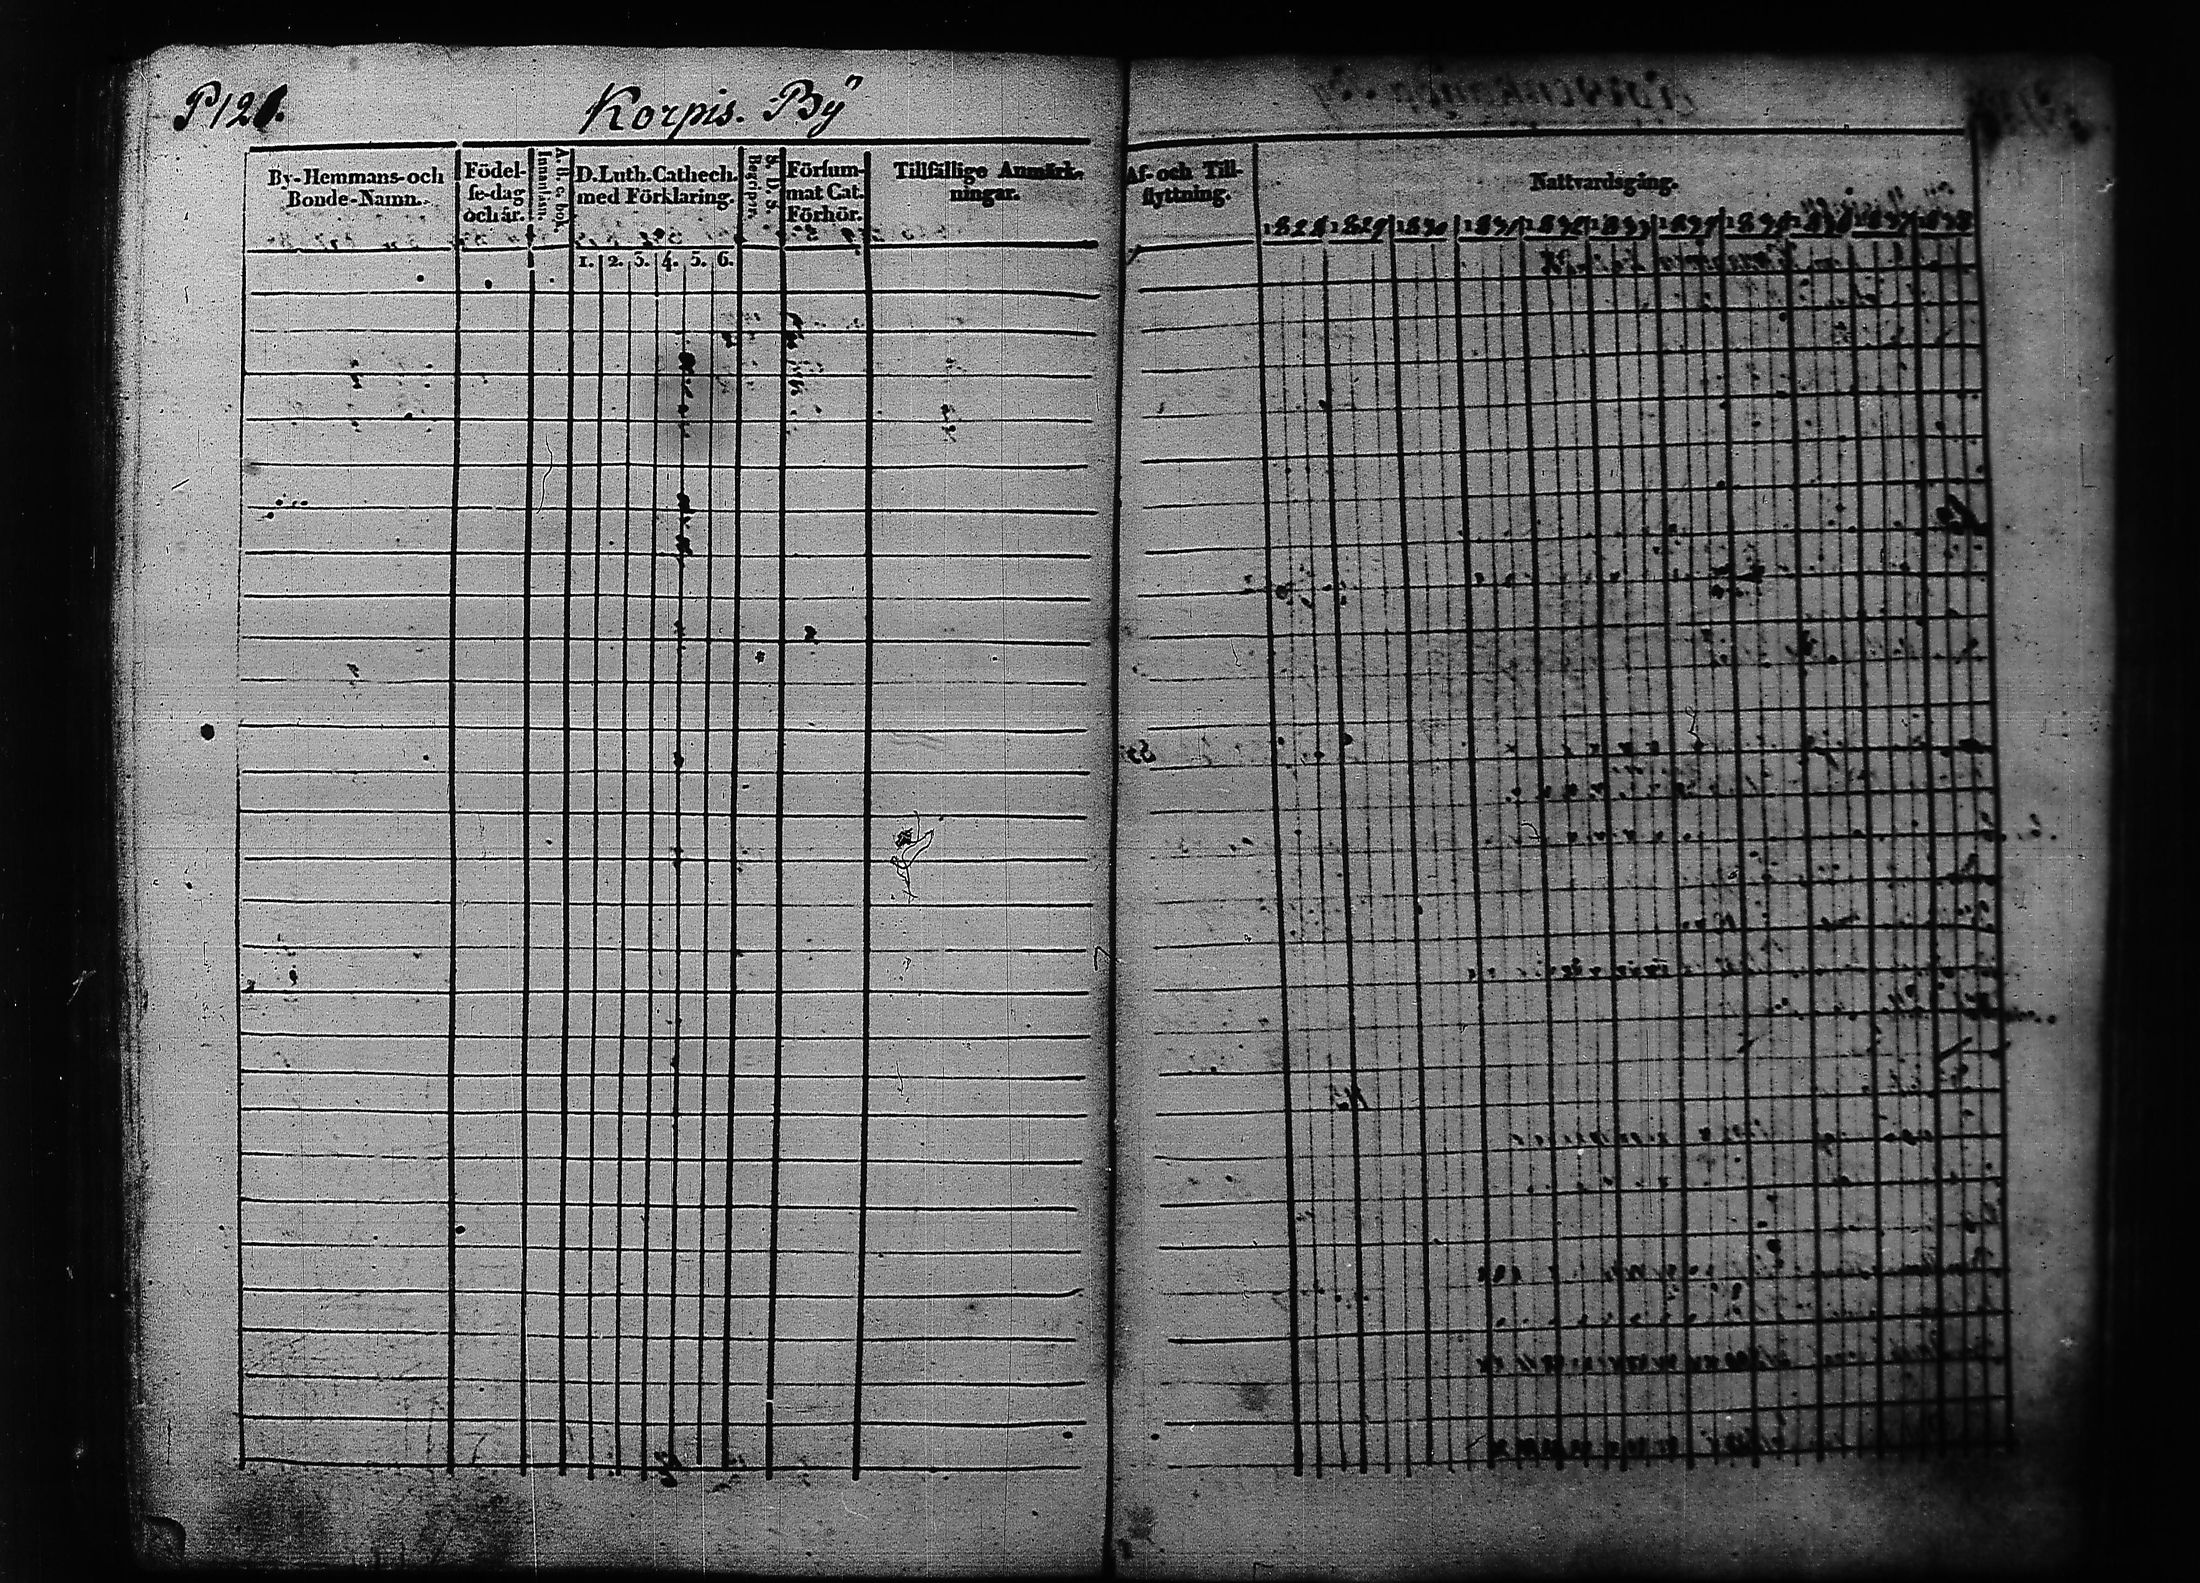 P 121.
Korpis. By
By-Hemmans-och
Bonde-Namn.
Födel-
se-dag
och år.
A. B. c. bok.
Innanläsn.
D. Luth. Cathech.
med Förklaring.
1. 2. 3. 4. 5. 6.
S. D. S.
Begripr.
Försum-
mat Cat.
Förhör.
Tillfällige Anmärk-
ningar.
Af- och Till-
flyttning.
Nattvardsgång.
1828 1829 1830 1831 1832 1833 1834 1835 1836 1837 1838